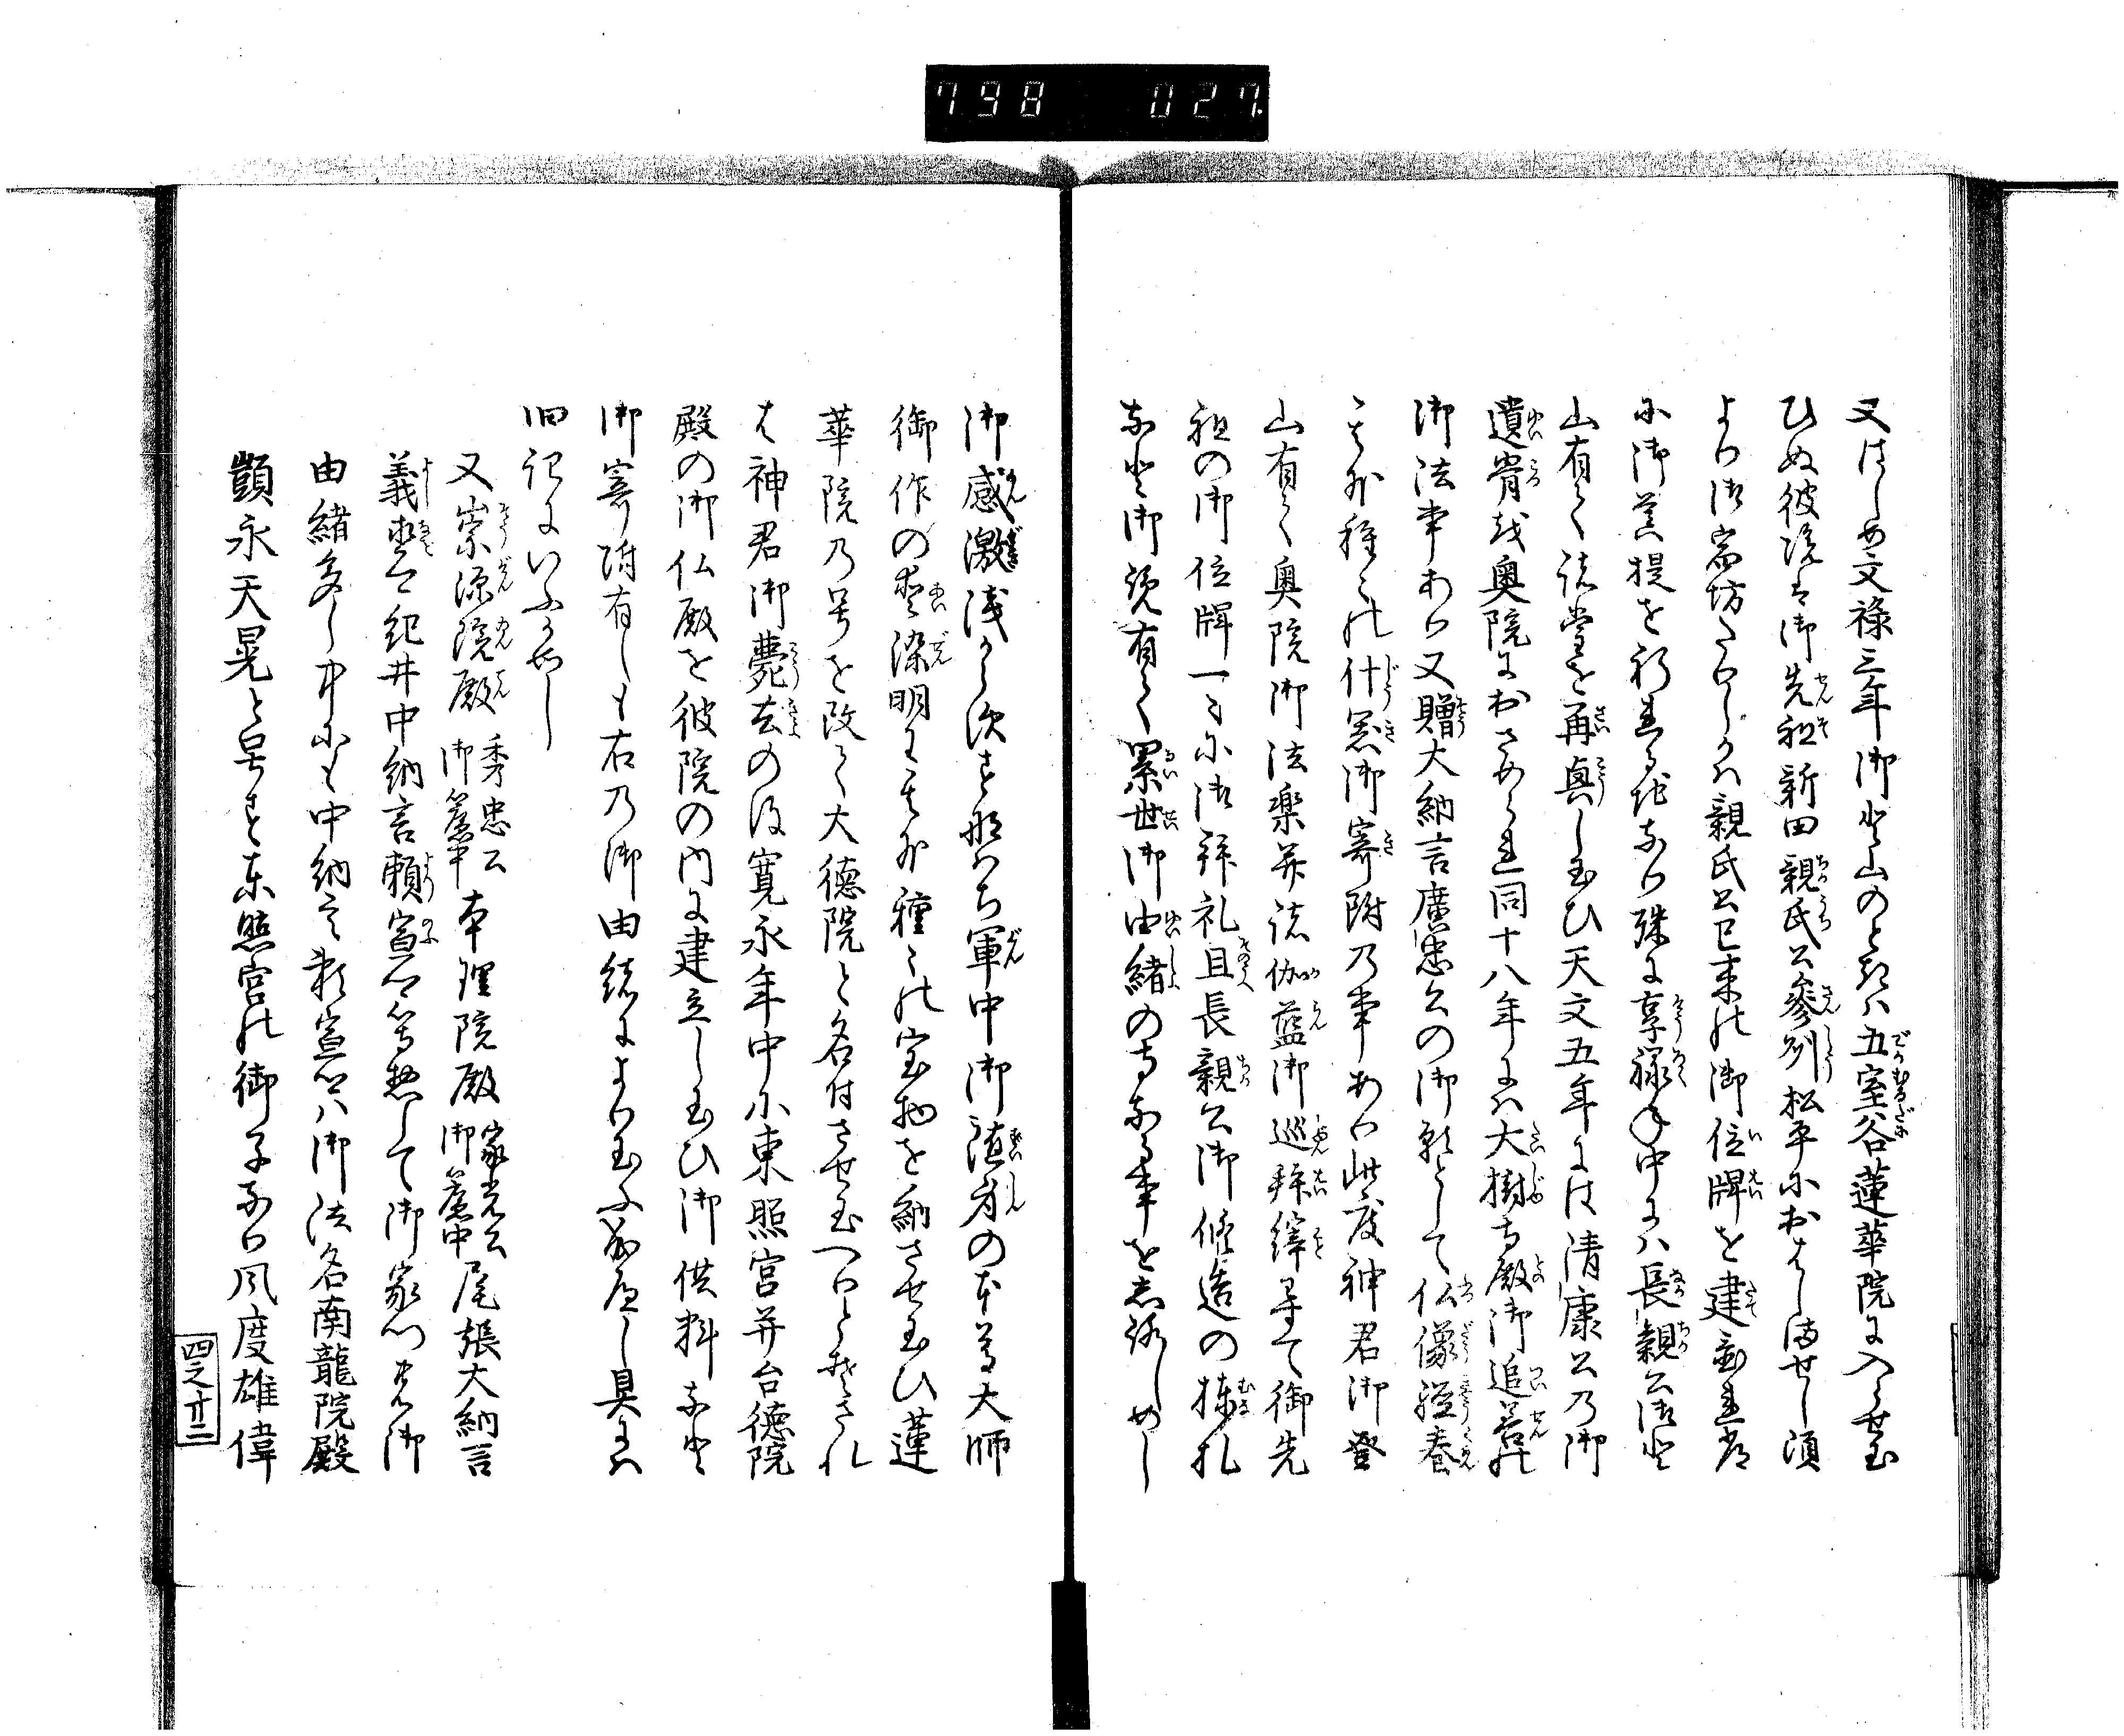 798 027
又はしめ文禄三年御登山のときは五室谷蓮華院に入らせ玉
ひぬ彼院は御先祖新田親氏公參州松平におはしませし頃
より御宿坊たりしかは親氏公已来の御位牌を建置れ常
に御菩提を祈れる地なり殊に享禄年中には長親公御登
山有て諸堂を再興し玉ひ天文五年には清康公乃御
遺骨を奥院におさめられ同十八年には大樹寺殿御追善の
御法事あり又贈大納言廣忠公の御願として仏像經巻
其外種々の什器御寄附乃事あり此度神君御登
山有て奥院御法楽并諸伽藍御巡拝繹尋て御先
祖の御位牌一々に御拝礼且長親公御修造の棟札
なと御覧有て累世御由緒の寺なる事を志ろしめし
御感激浅からす則ち軍中御護身の本尊大師
御作の愛染明王其外種々の宝物を納させ玉ひ蓮
華院乃号を改て大徳院と名付させ玉へりとそされ
は神君御薨去の後寛永年中に東照宮并台徳院
殿の御仏殿を彼院の内に建立し玉ひ御供料なと
御寄附有しも右乃御由緒により玉ふなるへし具には
旧記にいふかせし
又崇源院殿 秀忠公御簾中 本理院殿 家光公御簾中 尾張大納言
義直公紀井中納言頼宣公等惣して御家門方御
由緒多し中にも中納言頼宣公は御法名南龍院殿
顗永天晃と号す東照宮の御子なり風度雄偉
四之廿二